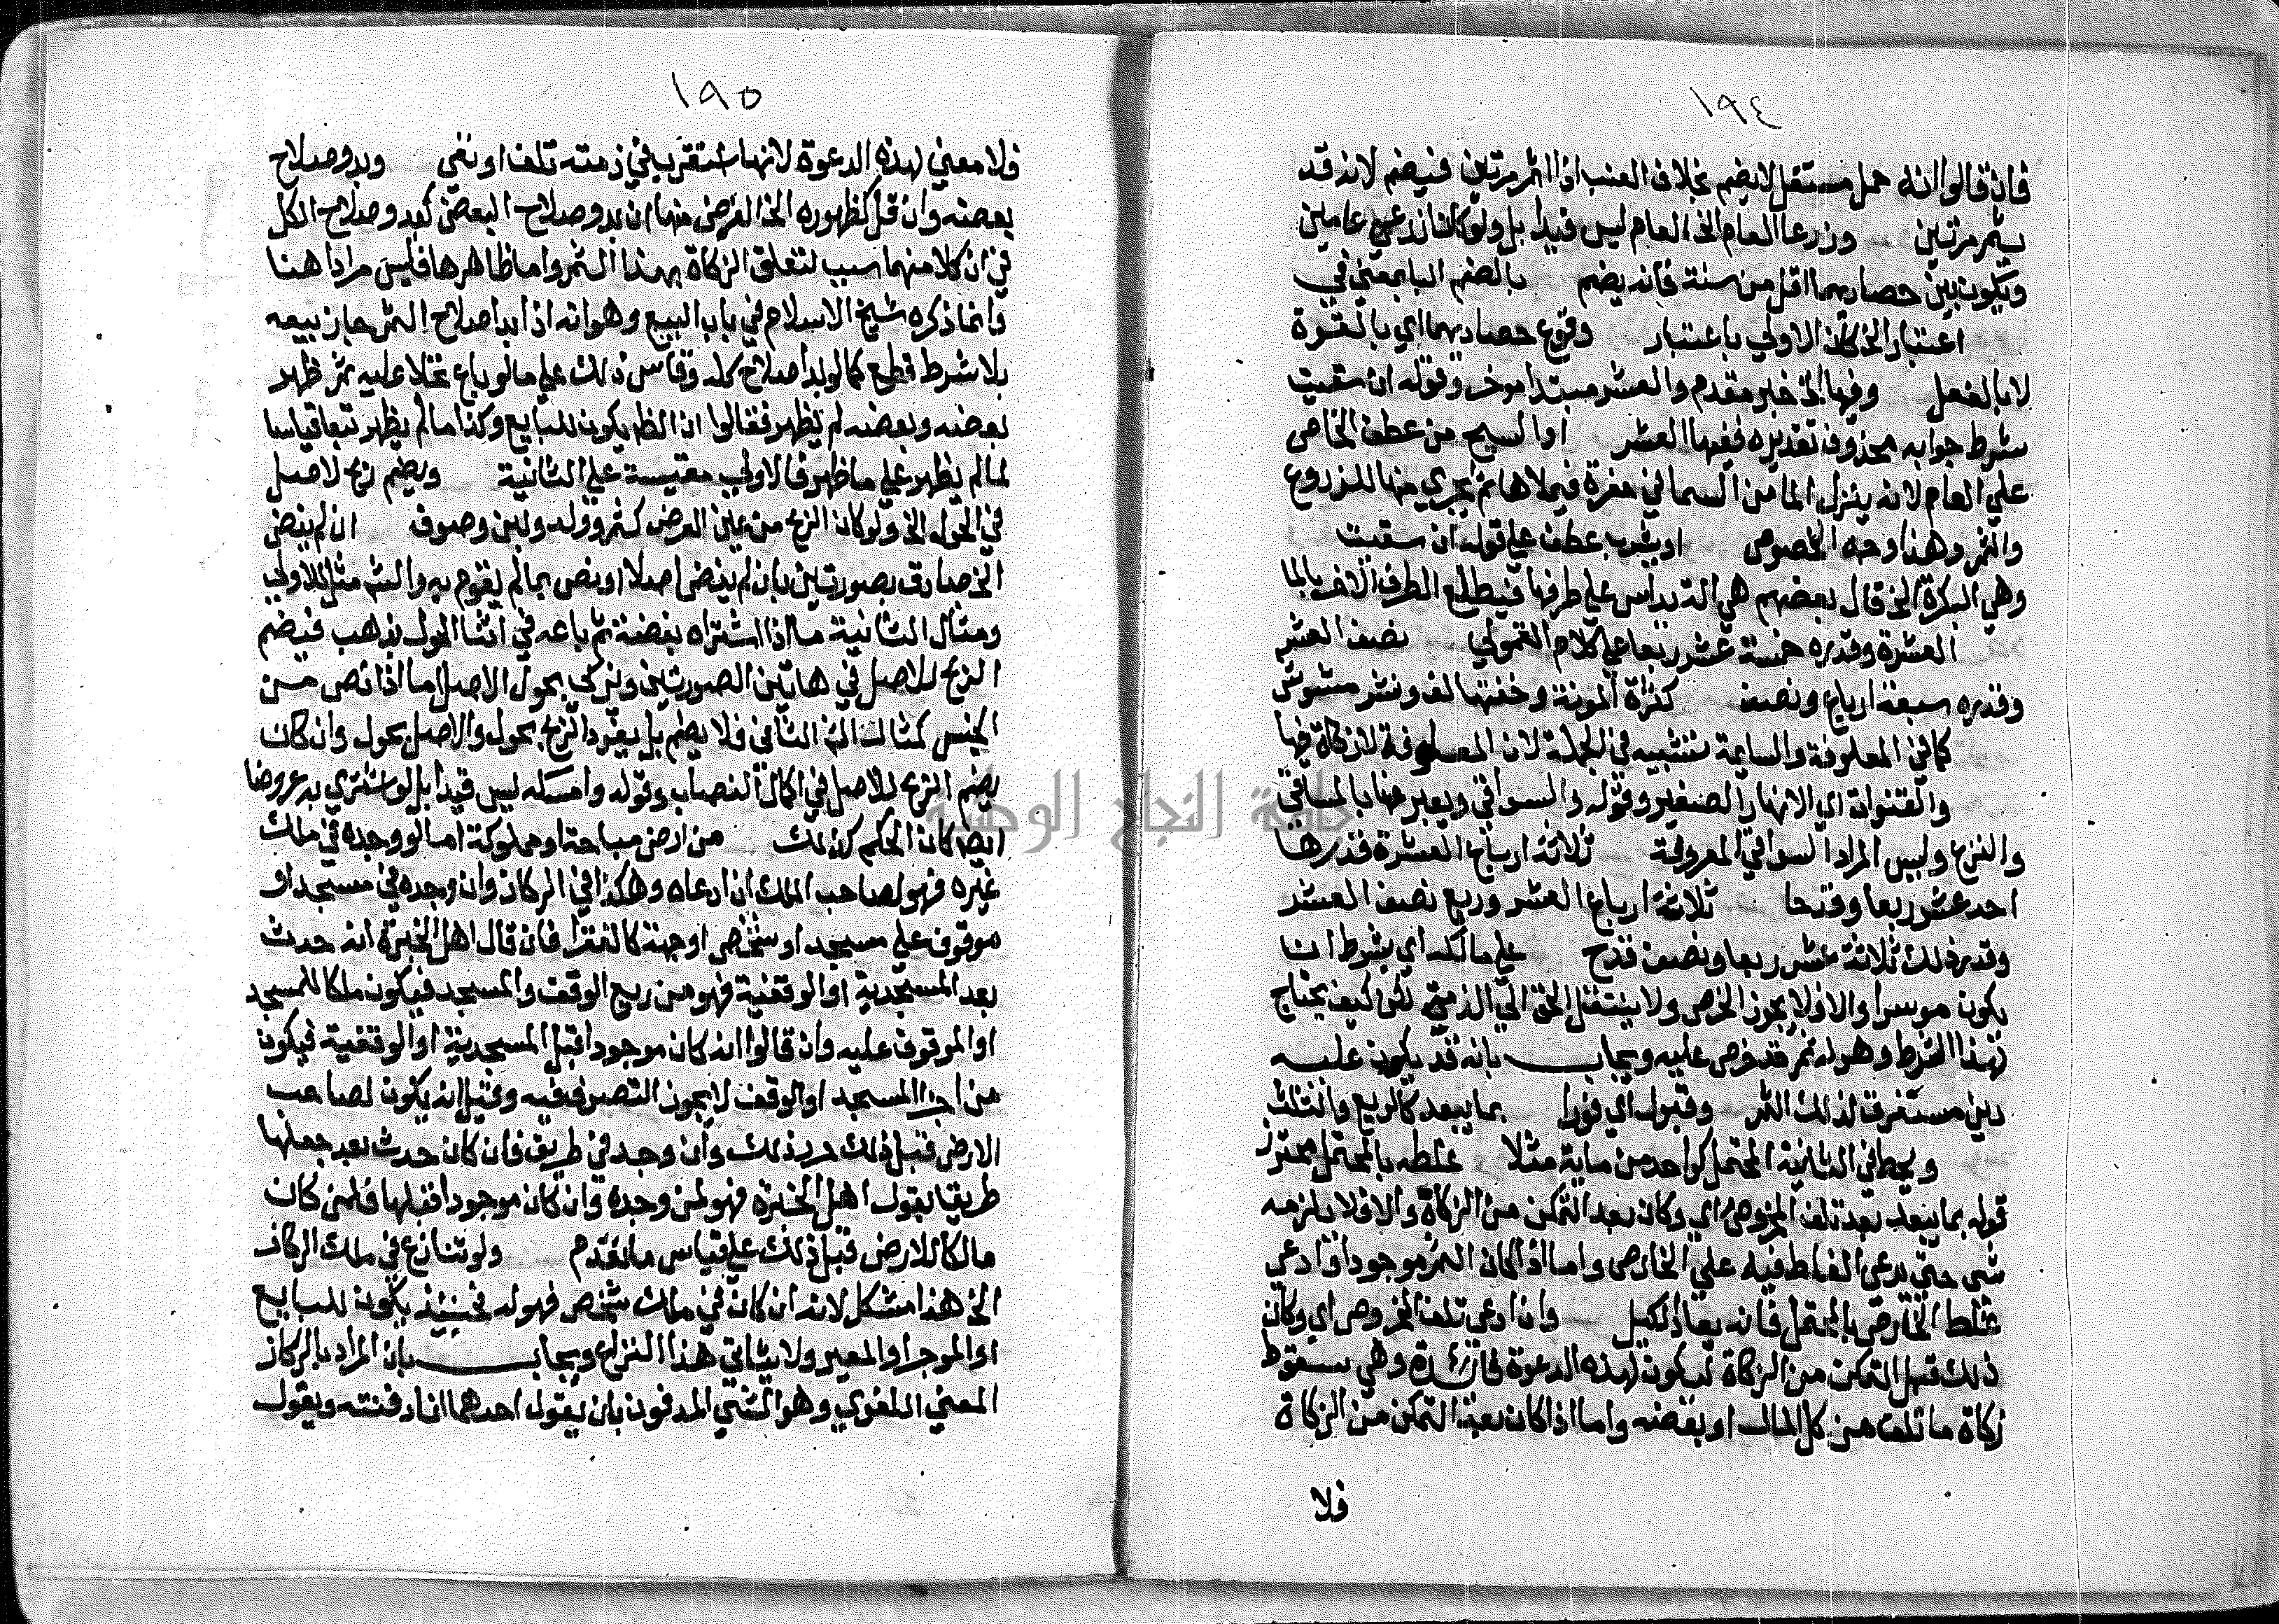 ١٩٤
فان قالوا انه حمل مستقل لا يضم بخلاف العنب اذا اثمر مرتين فيضم لانه قد
يثمر مرتين وزرعا العام الخ العام ليس قيدا بل ولو كانا زرعي عامين
ويكون بين حصاديهما اقل من سنة فانه يضم بالضم البا بمعني في
اعتبار الخ كان الاولي باعتبار وقوع حصاديهما اي بالقوة
لا بالفعل وفيها الخ خبر مقدم والعشر مبتدا موخر وقوله ان سقيت
شرط جوابه محذوف تقديره ففيها العشر او السيح من عطف الخاص
علي العام لانه ينزل الما من السما في حفرة فيملاها ثم يجري منها للزروع
والثمر وهذا وجه الخصوص او يشرب عطف علي قوله ان سقيت
وهي البكرة الخ قال بعضهم هي التي يداس علي طرفها فيطلع الطرف الاخر بالما
العشرة وقدره خمسة عشر ربعا علي كلام القمولي نصف العشر
وقدره سبعة ارباع ونصف كثرة المونة وخفتها لف ونشر مشوش
كما في المعلوفة والسايمة تشبيه في الجملة لان المعلوفة لا زكاة فيها
والقنوات اي الانهار الصغير وقوله والسواقي ويعبر عنها بالمساقي
والنزع وليس المراد السواقي المعروفة ثلاثة ارباع العشرة قدرها
احد عشر ربعا وقدحا ثلاثة ارباع العشر وربع نصف العشر
وقدر ذلك ثلاثة عشر ربعا ونصف قدح علي مالكه اي بشرط ان
يكون موسرا والا فلا يجوز الخرص ولا ينتقل الحق الي الذمة لكن كيف يحتاج
لهذا الشرط وهو له ثمر قد خرص عليه ويجاب بانه قد يكون عليه
دين مستغرق لذلك الثمر وقبول اي فورا بما يبعد كالربع والثلث
ويحط في الثانية المحتمل كواحد من ماية مثلا غلطه بالمحتمل محترز
قوله بما يبعد بعد تلف المخروص اي وكان بعد التمكن من الزكاة والا فلا يلزمه
شي حتي يدعي الغلط فيه علي الخارص واما اذا كان الثمر موجودا وادعي
غلط الخارص بالمحتمل فانه يعاد الكيل وان ادعي تلف المخروص اي وكان
ذلك قبل التمكن من الزكاة ليكون لهذه الدعوة فائدة وهي سقوط
زكاة ما تلف من كل المال او بعضه واما اذا كان بعد التمكن من الزكاة
فلا
١٩٥
فلا معني لهذه الدعوة لانها استقرت في ذمته تلف او بقي وبدو صلاح
بعضه وان قل كظهوره الخ الغرض منها ان بدو صلاح البعض كبدو صلاح الكل
في ان كلا منهما سبب لتعلق الزكاة بهذا الثمر واما ظاهرها فليس مرادا هنا
وانما ذكره شيخ الاسلام في باب البيع وهو انه اذا بدا صلاح الثمر جاز بيعه
بلا شرط قطع كما لو بدا صلاح كله وقاس ذلك علي ما لو باع نخلا عليه ثمر ظهر
بعضه وبعضه لم يظهر فقالوا ان الظهر يكون للبايع وكذا ما لم يظهر تبعا قياسا
لما لم يظهر علي ما ظهر فالاولي مقيسة علي الثانية ويضم ربح لاصل
في الحول الخ ولو كان الربح من عين العرض كثمر وولد ولبن وصوف ان لم ينض
الخ صادق بصورتين بان لم ينض اصلا او نض بما لم يقوم به والشـ مثل للاولي
ومثال الثانية ما اذا اشتراه بفضة ثم باعه في اثنا الحول بذهب فيضم
الربح للاصل في هاتين الصورتين ويزكي بحول الاصل اما اذا نض من
الجنس كمثال الشـ الثاني فلا يضم بل يفرد الربح بحول والاصل بحول وان كان
يضم الربح للاصل في اكمال النصاب وقوله وامسكه ليس قيدا بل لو اشتري به عروضا
ايضا كان الحكم كذلك من ارض مباحة او مملوكة اما لو وجده في ملك
غيره فهو لصاحب الملك ان ادعاه وهكذا في الركاز وان وجده في مسجد او
موقوف علي مسجد او شخص او جهة كالفقرا فان قال اهل الخبرة انه حدث
بعد المسجدية او الوقفية فهو من ريع الوقف والمسجد فيكون ملكا للمسجد
او الموقوف عليه وان قالوا انه كان موجودا قبل المسجدية او الوقفية فيكون
من اجزا المسجد او الوقف لا يجوز التصرف فيه وقيل انه يكون لصاحب
الارض قبل ذلك وان وجد في طريق فان كان حدث بعد جعلها
طريقا بقول اهل الخبرة فهو لمن وجده وان كان موجودا قبلها فلمن كان
مالكا للارض قبل ذلك علي قياس ما تقدم ولو تنازع في ملك الركاز
الخ هذا مشكل لانه ان كان في ملك شخص فهو له فحينئذ يكون للبايع
او الموجر او المعير ولا يتاتي هذا النزاع ويجاب بان المراد بالركاز
المعني اللغوي وهو الشي المدفون بان يقول احدهما انا دفنته ويقول
جامعة النجاح الوطنية